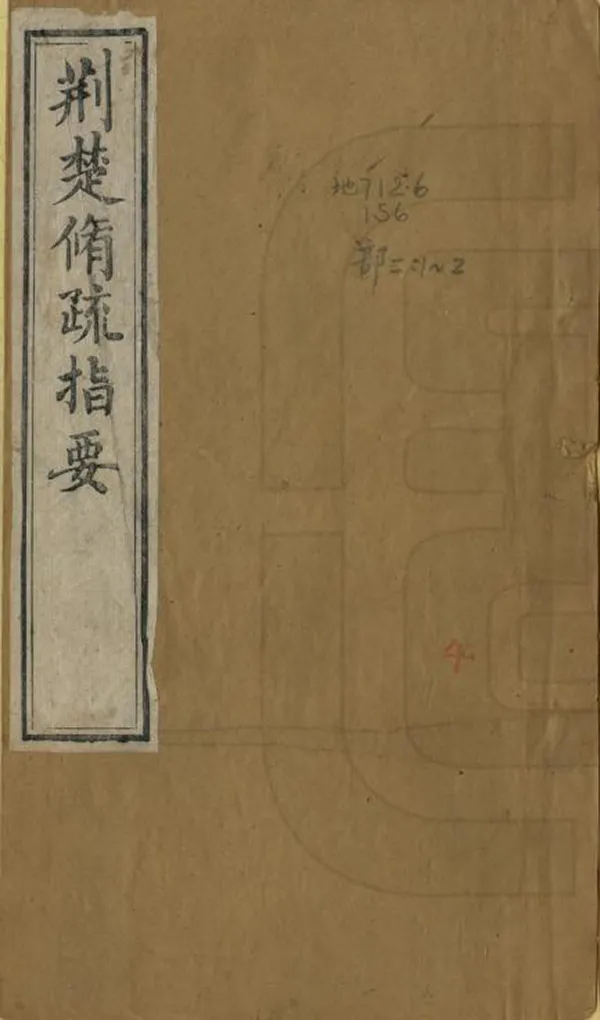 荆楚脩疏指要
地712.6
156
部二:1~2
4